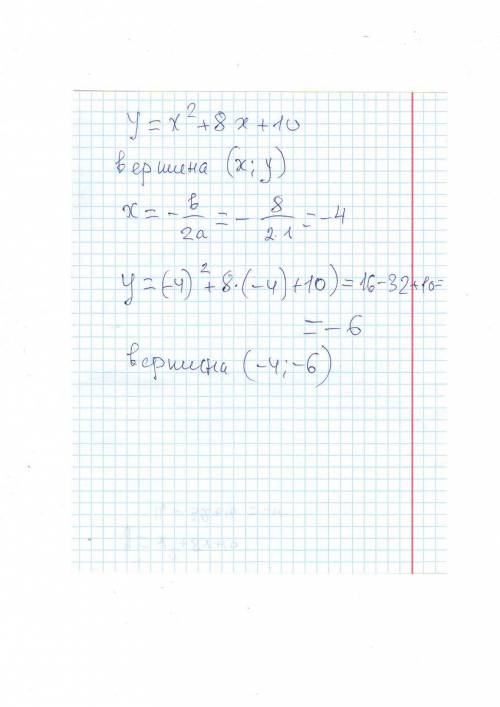 y = x² + 8x + 10
вершина (x; y)
x = - b/2a = - 8/2·1 = -4
y = (-4)² + 8·(-4) + 10) = 16 - 32 + 10 =
= - 6
вершина (-4; -6)